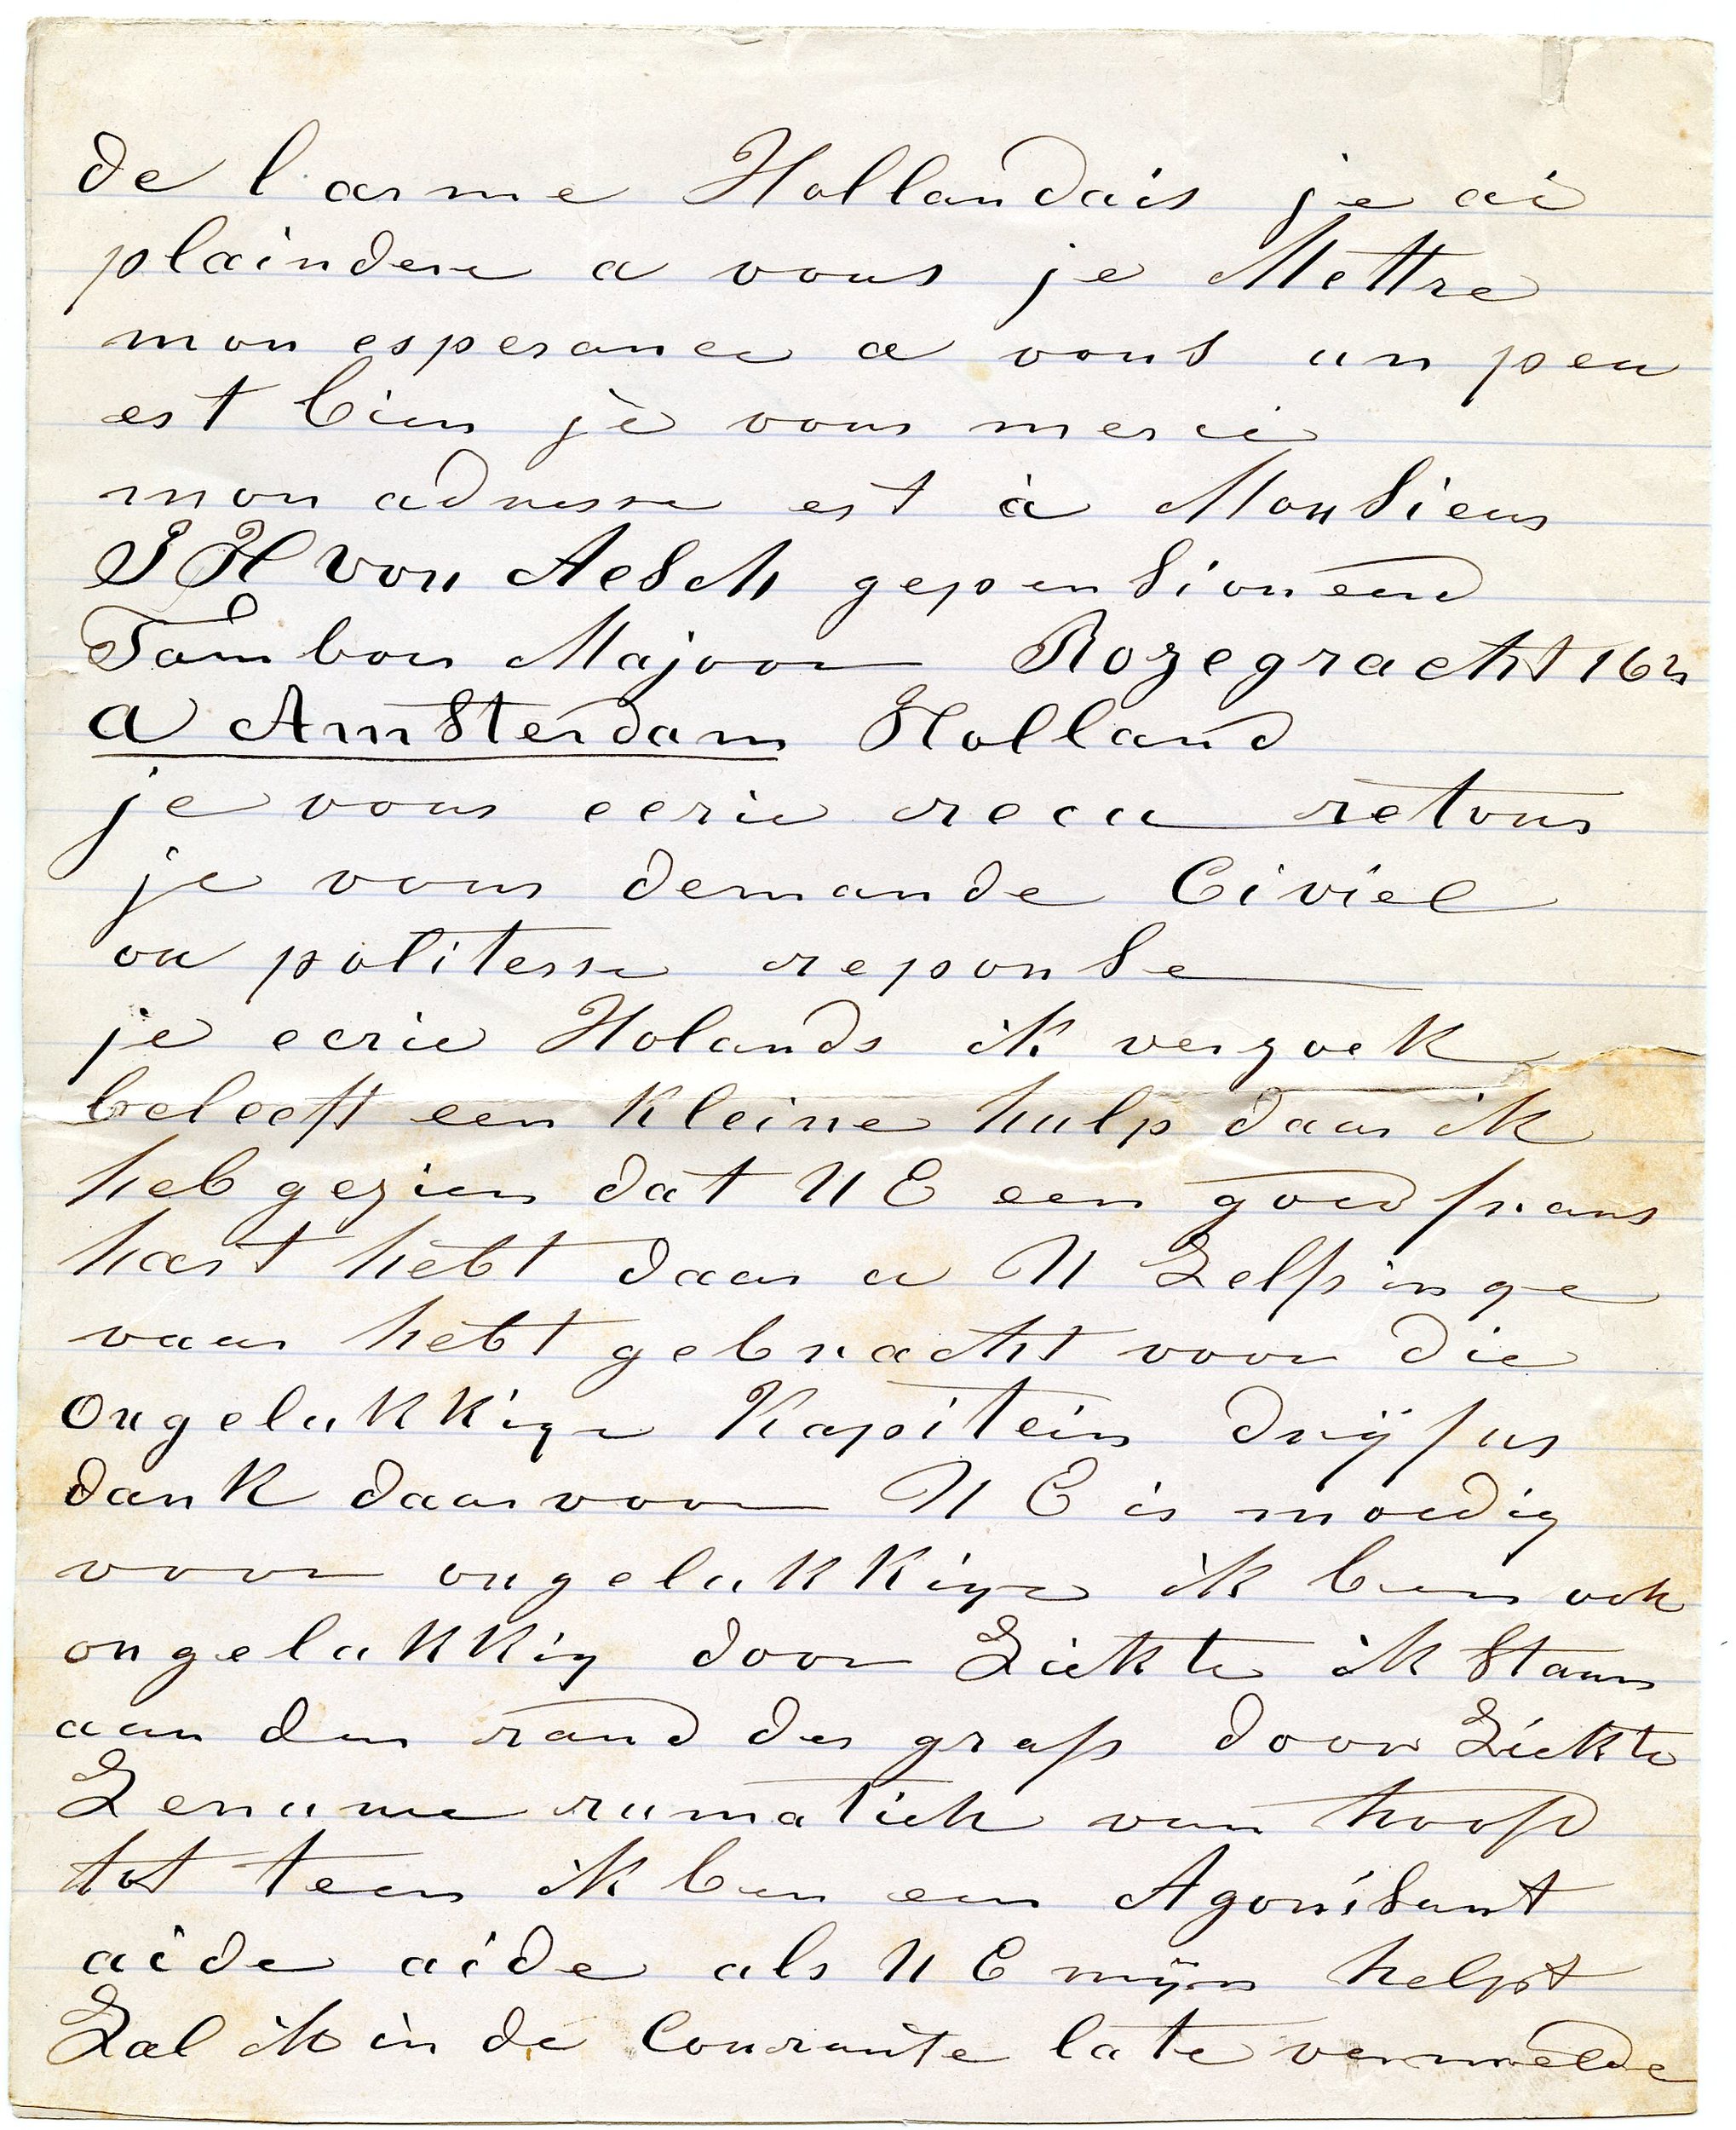 de l'arme Hollandais je ai
plaindere a vous je Mettre
mon esperance a vous un peu
est bien je vous merci
mon adresse est à Monsieur
J H von Aesch gepensioneerd
Tambour Majoor Rozegracht 162
a Amsterdam Holland
je vous ecrie recu retour
je vous demande Civiel
ou politesse reponse
je ecrie Holands ik verzoek
beleeft een kleine hulp daar ik
heb gezien dat U E een goed frans
hart hebt daar u U Zelf in ge
vaar hebt gebracht voor die
ongelukkige Kapitein drÿfus
dank daarvoor U E is moedig
voor ongelukkige ik ben ook
ongelukkig door Ziekte ik Staan
aan den rand der graf door Ziekte
Zenuwe rumatiek van hoofd
tot teen ik ben een Agonisant
aide aide als U E mÿn helpt
Zal ik in de Courante late vermelde